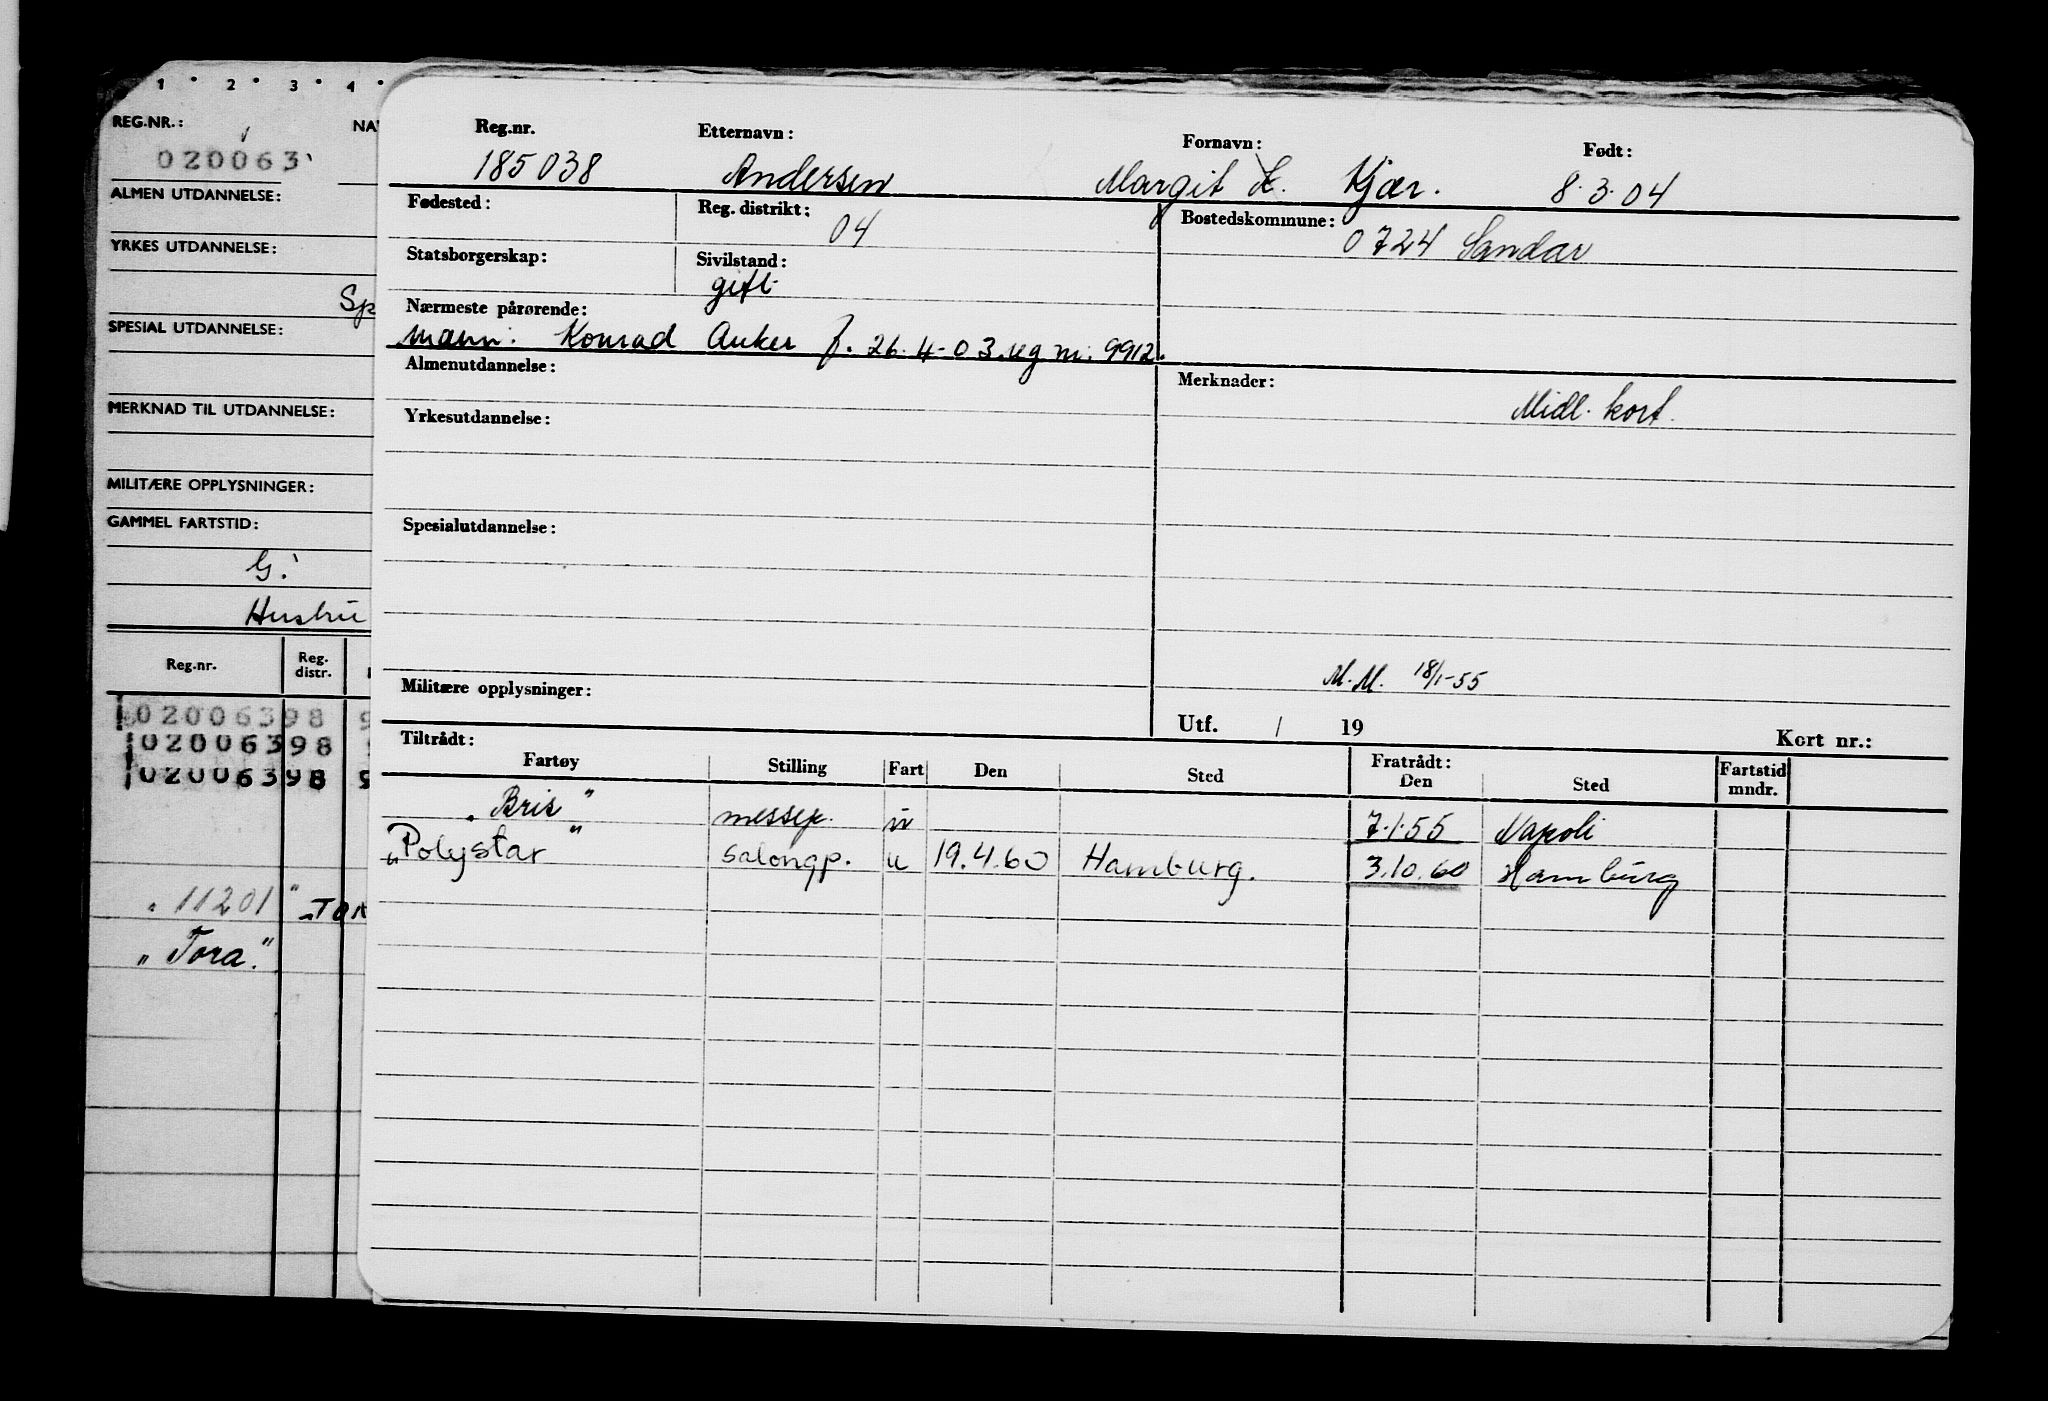 1 2 3 4
REG.NR.: NA
020063
ALMEN UTDANNELSE:
YRKES UTDANNELSE:
Sp
SPESIAL UTDANNELSE:
MERKNAD TIL UTDANNELSE:
MILITÆRE OPPLYSNINGER:
GAMMEL FARTSTID:
G.
Reg.nr. Reg. distr.
02006398 9
02006398 9
02006398 9
"11201" "TOR
"Tora."
Reg.nr. Etternavn: Fornavn: Født:
185038 Andersen Margit K. Kjær. 8.3.04
Fødested: Reg. distrikt: 04 Bostedskommune: 0724 Sandar
Statsborgerskap: Sivilstand:
gift.
Nærmeste pårørende:
mann: Konrad Anker f. 26.4-03 reg nr. 9912.
Almenutdannelse: Merknader:
Midl. kort.
Yrkesutdannelse:
Spesialutdannelse:
M.M. 18/1-55
Militære opplysninger:
Utf. / 19 Kort nr.:
Tiltrådt: Fratrådt:
Fartøy Stilling Fart Den Sted Den Sted Fartstid mndr.
"Bris" messep. u 7.1.55 Napoli
"Polystar" salongp. u 19.4.60 Hamburg. 3.10.60 Hamburg